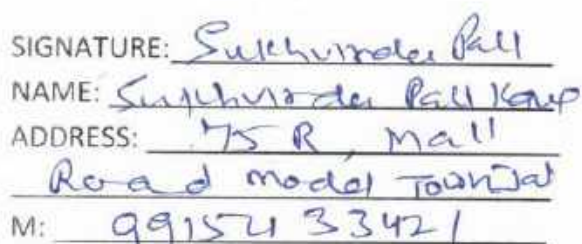 SIGNATURE: Sukhvinder Pall
NAME: Sukhvinder Pall Kaur
ADDRESS: 75 R, Mall
Road Model Town Jal
M: 9915433421